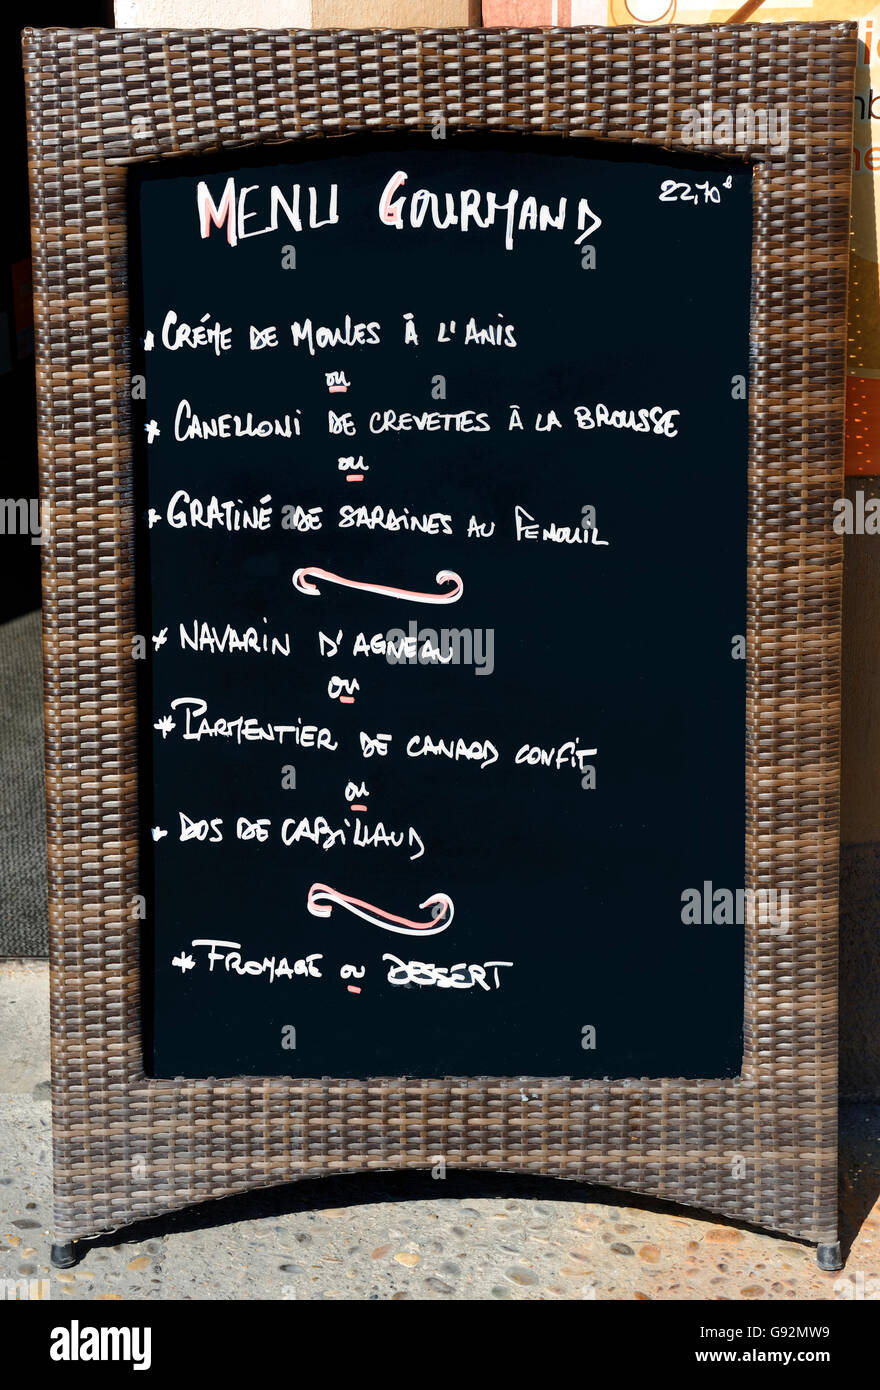 MENU GOURMAND 22,70€
* CRÉME DE MOULES À L'ANIS
ou
* CANELLONI DE CREVETTES À LA BROUSSE
ou
* GRATINÉ DE SARDINES AU FENOUIL
* NAVARIN D'AGNEAU
ou
* PARMENTIER DE CANARD CONFIT
ou
* DOS DE CABILLAUD
* FROMAGE ou DESSERT
alamy stock photo
G92MW9
www.alamy.com